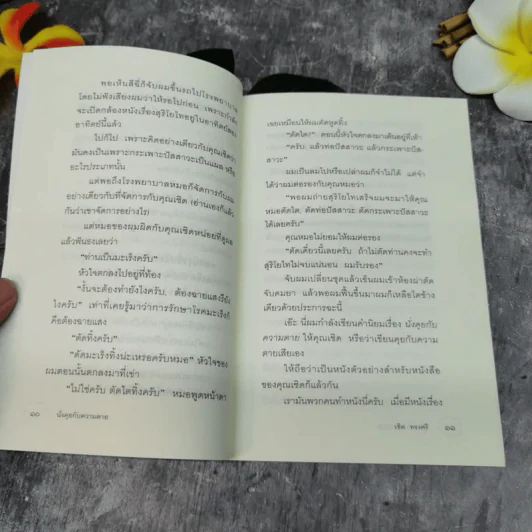 พอเห็นสีฉี่ก็จับผมขึ้นรถไปโรงพยาบาล
โดยไม่ฟังเสียงผมว่าให้รอไปก่อน เพราะกำลัง
จะเปิดกล้องหนังเรื่องสุริโยไทอยู่ในอาทิตย์สอง
อาทิตย์นี้แล้ว
ไปก็ไป เพราะคิดอย่างเดียวกับคุณเชิดว่า
มันคงเป็นเพราะกระเพาะปัสสาวะเป็นแผล หรือ
อะไรประเภทนั้น
แต่พอถึงโรงพยาบาลหมอก็จัดการกับผม
อย่างเดียวกับที่จัดการกับคุณเชิด (อ่านเองก็แล้ว
กันว่าเขาจัดการอย่างไร)
แต่หมอของผมผิดกับคุณเชิดหน่อยที่ดูผล
แล้วฟันธงเลยว่า
"ท่านเป็นมะเร็งครับ"
หัวใจตกลงไปอยู่ที่ท้อง
"งั้นจะต้องทำยังไงครับ. ต้องฉายแสงรึยัง
ไงครับ" เท่าที่เคยรู้มาว่าการรักษาโรคมะเร็งก็
คือต้องฉายแสง
"ตัดทิ้งครับ"
"ตัดมะเร็งทิ้งน่ะเหรอครับหมอ" หัวใจของ
ผมตอนนั้นตกลงมาที่เข่า
"ไม่ใช่ครับ ตัดไตทิ้งครับ" หมอพูดหน้าตา
๑๐ นั่งคุยกับความตาย
เฉยเหมือนให้ผมตัดหูดทิ้ง
"ตัดไต!" ตอนนี้หัวใจตกลงมาเต้นอยู่ที่เท้า
"ครับ แล้วท่อปัสสาวะ แล้วกระเพาะปัส-
สาวะ"
ผมเป็นลมไปหรือเปล่าผมก็จำไม่ได้ แต่จำ
ได้ว่าผมต่อรองกับคุณหมอว่า
"พอผมถ่ายสุริโยไทเสร็จผมจะมาให้คุณ
หมอตัดไต, ตัดท่อปัสสาวะ ตัดกระเพาะปัสสาวะ
ได้เลยครับ"
คุณหมอไม่ยอมให้ผมต่อรอง
"ตัดเดี๋ยวนี้เลยครับ ถ้าไม่ตัดท่านคงจะทำ
สุริโยไทไม่จบแน่นอน ผมรับรอง"
จับผมเปลี่ยนชุดแล้วเข็นผมเข้าห้องผ่าตัด
จับดมยา แล้วพอผมฟื้นขึ้นมาผมก็เหลือไตข้าง
เดียวด้วยประการฉะนี้
เอ๊ะ นี่ผมกำลังเขียนคำนิยมเรื่อง นั่งคุยกับ
ความตาย ให้คุณเชิด หรือว่าเขียนคุยกับความ
ตายเสียเอง
ให้ถือว่าเป็นหนังตัวอย่างสำหรับหนังสือ
ของคุณเชิดก็แล้วกัน
เรามันพวกคนทำหนังนี่ครับ เมื่อมีหนังเรื่อง
เชิด ทรงศรี ๑๑